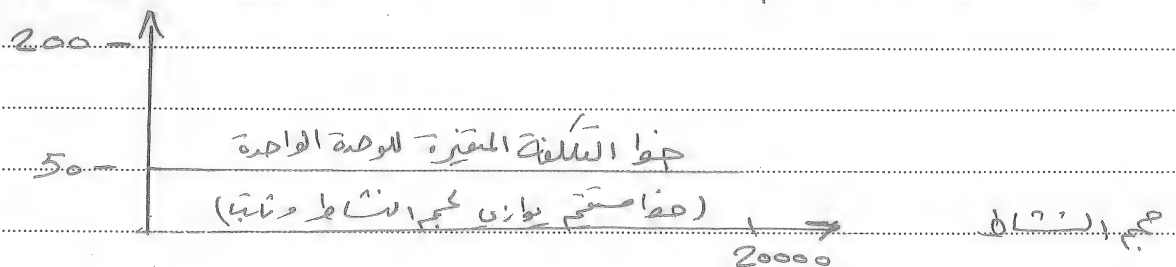 200
خط التكلفة المتغيرة للوحدة الواحدة
50
(خط مستقيم يوازي حجم النشاط وثابتا)
حجم النشاط
20000